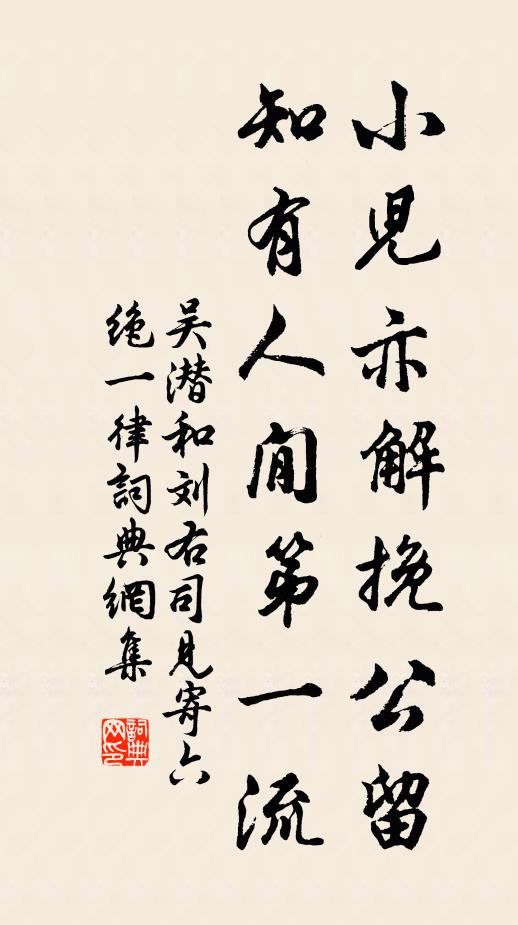 小兒亦解挽公留
知有人間第一流
吴潜和刘右司見寄六
绝一律詞典網集
詞典
网印